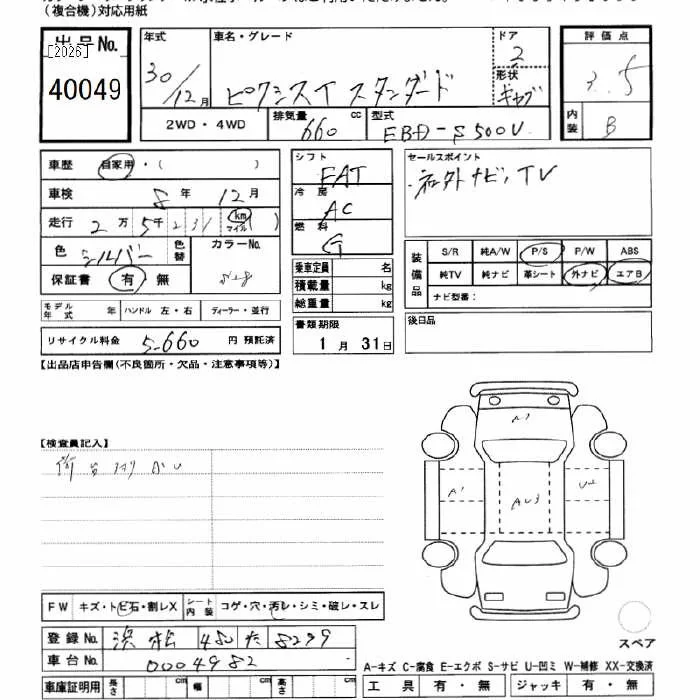 （複合機）対応用紙
出品No.
[2026]
40049
年式
30/12月
車名・グレード
ピクシスT スタンダード
ドア
2
形状
キャブ
2WD・4WD
排気量
660 cc
型式
EBD-S500U
評価点
3.5
内装
B
車歴
自家用・（ ）
車検
8年 12月
走行
2万5千231 km マイル（ ）
色
シルバー
色替
カラーNo.
保証書
有・無
モデル年式 年
ハンドル 左・右
ディーラー・並行
リサイクル料金
5,660 円 預託済
シフト
FAT
冷房
AC
燃料
G
乗車定員 名
積載量 kg
総重量 kg
書類期限
1月31日
セールスポイント
・社外ナビ、TV
装備品
S/R 純A/W P/S P/W ABS
純TV 純ナビ 革シート 外ナビ エアB
ナビ型番：
後日品
【出品店申告欄(不良箇所・欠品・注意事項等)】
【検査員記入】
A1
A1
AU3
U2
FW
キズ・トビ石・割レX
シート内装
コゲ・穴・汚レ・シミ・破レ・スレ
登録No.
浜松 480 た 8299
車台No.
0004982
車庫証明用
長さ cm 幅 cm 高さ cm
スペア
A-キズ C-腐食 E-エクボ S-サビ U-凹ミ W-補修 XX-交換済
工具 有・無 ジャッキ 有・無